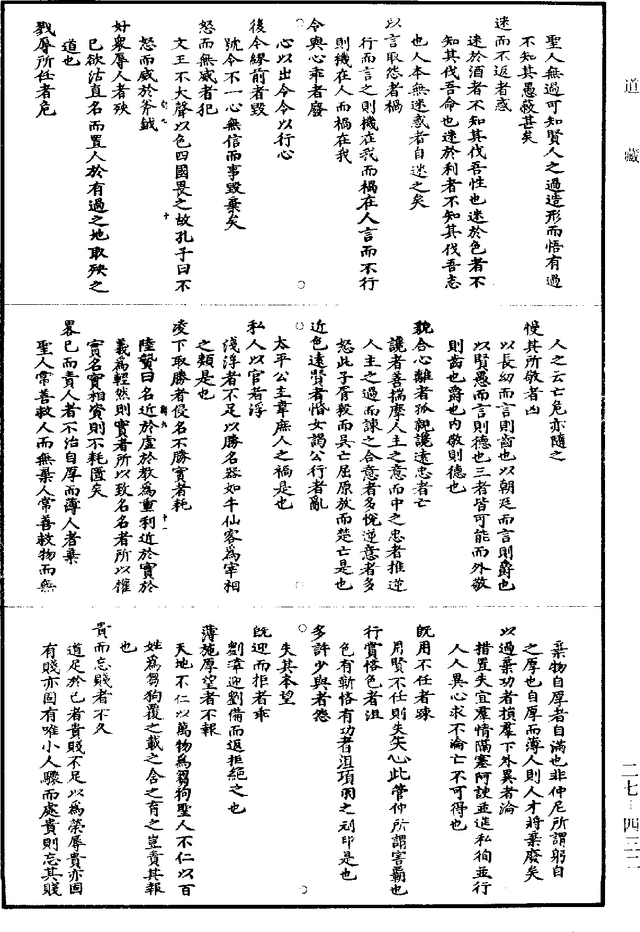 道藏
聖人無過可知賢人之過造形而悟有過
不知其愚蔽甚矣
迷而不返者惑
迷於酒者不知其伐吾性也迷於色者不
知其伐吾命也迷於利者不知其伐吾志
也人本無迷惑者自迷之矣
以言取怨者禍
行而言之則機在我而禍在人言而不行
則機在人而禍在我
令與心乖者廢
心以出令令以行心
後令繆前者毀
號令不一心無信而事毀棄矣
怒而無威者犯
文王不大聲以色四國畏之故孔子曰不
怒而威於斧鉞
好衆辱人者殃
己欲沽直名而置人於有過之地取殃之
道也
戮辱所任者危
人之云亡危亦隨之
慢其所敬者凶
以長幼而言則齒也以朝廷而言則爵也
以賢愚而言則德也三者皆可能而外敬
則齒也爵也内敬則德也
貌合心離者孤親讒遠忠者亡
讒者善揣摩人主之意而中之忠者推逆
人主之過而諫之合意者多悅逆意者多
怒此子胥殺而吳亡屈原放而楚亡是也
近色遠賢者惛女謁公行者亂
太平公主韋庶人之禍是也
私人以官者浮
淺浮者不足以勝名器如牛仙客為宰相
之類是也
凌下取勝者侵名不勝實者耗
陸贄曰名近於虛於教為重利近於實於
義為輕然則實者所以致名名者所以權
實名實相資則不耗匱矣
畧己而責人者不治自厚而薄人者棄
聖人常善救人而無棄人常善救物而無
棄物自厚者自滿也非仲尼所謂躬自
之厚也自厚而薄人則人才將棄廢矣
以過棄功者損羣下外異者淪
措置失宜羣情隔塞阿諛並進私徇並行
人人異心求不淪亡不可得也
既用不任者疎
用賢不任則失失心此管仲所謂害霸也
行賞悋色者沮
色有靳悋有功者沮項羽之刓印是也
多許少與者怨
失其本望
既迎而拒者乖
劉漳迎劉備而返拒絕之也
薄施厚望者不報
天地不仁以萬物為芻狗聖人不仁以百
姓為芻狗覆之載之含之育之豈責其報
也
貴而忘賤者不久
道足於己者貴賤不足以為榮辱貴亦固
有賤亦固有唯小人驟而處貴則忘其賤
二七-四三二